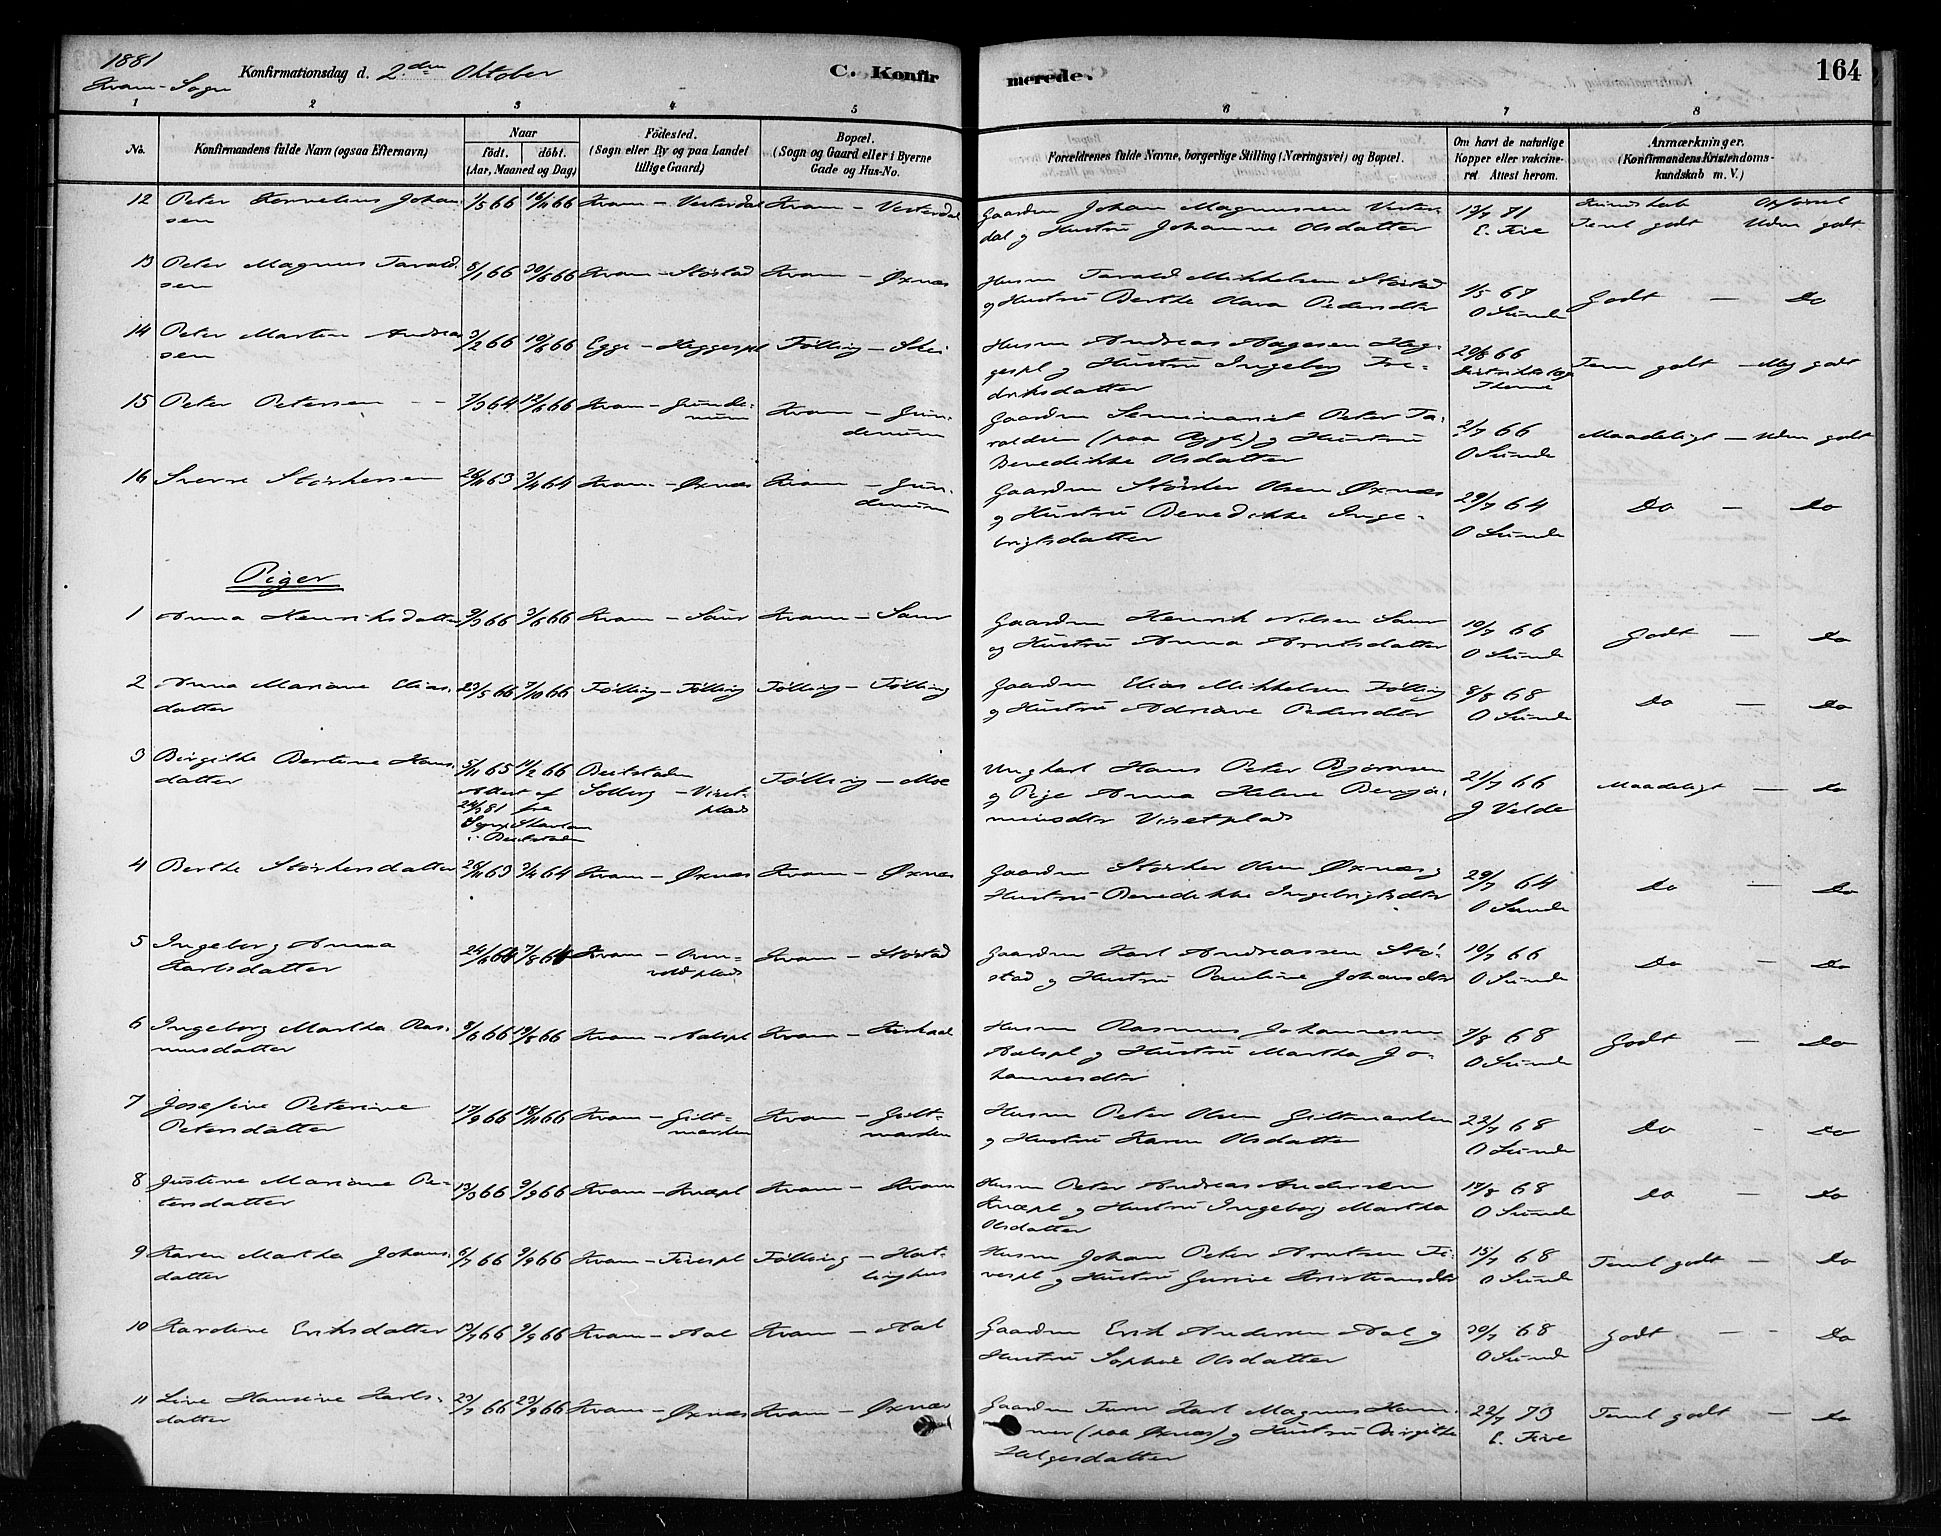 1881
Kvam - Sogn
Konfirmationsdag d. 2den Oktober
C. Konfirmerede.
164
1 2 3 4 5 6 7 8
No.
Konfirmandens fulde Navn (ogsaa Efternavn)
Naar
födt. döbt.
(Aar, Maaned og Dag)
Födested.
(Sogn eller By og paa Landet tillige Gaard)
Bopæl.
(Sogn og Gaard eller i Byerne Gade og Hus-No.
Forældrenes fulde Navne, borgerlige Stilling (Næringsvei) og Bopæl.
Om havt de naturlige Kopper eller vakcineret Attest herom.
Anmærkninger.
(Konfirmandens Kristendomskundskab m. V.)
Kundskab Opførsel
12 Peter Kornelius Johansen 1/5 66 Kvam - Vesterdal Kvam - Vesterdal Gaardm Johan Magnussen Vesterdal og Hustru Johanne Olsdatter 71 E. Five Teml godt Udm godt
13 Peter Magnus Taraldsen 8/1 66 Kvam - Støstad Kvam - Øxnæs Husm Tarald Mikkelsen Støstad og Hustru Berthe Olava Pedersdtr 1/5 67 O Sunde Godt - Do
14 Peter Martin Andreasen 3/2 66 Egge - Heggespl Følling - Shei Husm Andreas Aagesen Heggespl og Hustru Ingeborg Fredriksdatter 29/8 66 Teml godt - Meg godt
15 Peter Petersen 64 66 Kvam - Gundenum Kvam - Gundenum Gaardm Seminarist Peter Taraldsen (paa Rygh) og Hustru Benedikke Olsdatter 2/7 66 O Sunde Maadeligt - Udm godt
16 Sverre Størkersen 26/11 63 3/4 64 Kvam - Øxnæs Kvam - Gundenum Gaardm Størker Olsen Øxnæs og Hustru Benedikke Ingebrigtsdatter 29/7 64 O Sunde Do - Do
Piger
1 Anna Henriksdatter 66 3/6 66 Kvam - Saur Kvam - Saur Gaardm Henrik Nilsen Saur og Hustru Anna Arntsdatter 10/7 66 O Sunde Godt - Do
2 Anna Mariane Eliasdatter 23/5 66 7/10 66 Følling - Følling Følling - Følling Gaardm Elias Mikkelsen Følling og Hustru Adriane Pedersdtr 8/8 68 O Sunde Do - Do
3 Birgithe Bertine Hansdatter 5/11 65 11/2 66 Beitstaden Solberg - Viset plads Følling - Moe Ungkarl Hans Peter Bjørnsen og Pige Anna Helene Benjaminsdtr Visetplads 21/7 66 J Velde Maadeligt - Do
Attest af 81 fra Sogn i Beitstaden
4 Berthe Størkersdatter 26/11 63 3/4 64 Kvam - Øxnæs Kvam - Øxnæs Gaardm Størker Olsen Øxnæs og Hustru Benedikke Ingebrigtsdtr 29/7 64 O Sunde Do - Do
5 Ingeborg Anna Karlsdatter 24/6 66 7/8 66 Kvam - plads Kvam - Støstad Gaardm Karl Andreassen Støstad og Hustru Pauline Johansdtr 10/7 66 O Sunde Do - Do
6 Ingeborg Martha Rasmusdatter 8/6 66 19/8 66 Kvam - Aalspl Kvam - Husm Rasmus Johannesen Aalspl og Hustru Martha Johannesdtr 7/8 68 O Sunde Godt - Do
7 Josefine Peterine Petersdatter 17/9 66 18/11 66 Kvam - Giltmarken Kvam - Giltmarken Husm Peter Olsen Giltmarken og Hustru Karen Olsdatter 22/7 68 O Sunde Do - Do
8 Justine Mariane Petersdatter 13/3 66 9/9 66 Kvam - Knæpl Kvam - Kvam Husm Peter Andreas Andersen Knæpl og Hustru Ingeborg Martha Olsdatter 17/8 68 O Sunde Do - Do
9 Karen Martha Johansdatter 6/7 66 9/9 66 Kvam - Fivespl Følling - Hatlinghus Husm Johan Peter Arntsen Fivespl og Hustru Gurine Kristiansdtr 15/7 68 O Sunde Teml godt - Do
10 Karoline Eriksdatter 13/7 66 9/9 66 Kvam - Aal Kvam - Aal Gaardm Erik Andersen Aal og Hustru Sophie Olsdatter 30/7 68 O Sunde Godt - - Do
11 Line Hansine Karlsdatter 23/7 66 23/9 66 Kvam - Øxnæs Kvam - Øxnæs Gaardm Karl Magnus Hammer (paa Øxnæs) og Hustru Birgitha Helgesdatter 22/7 73 E. Five Teml godt - Do